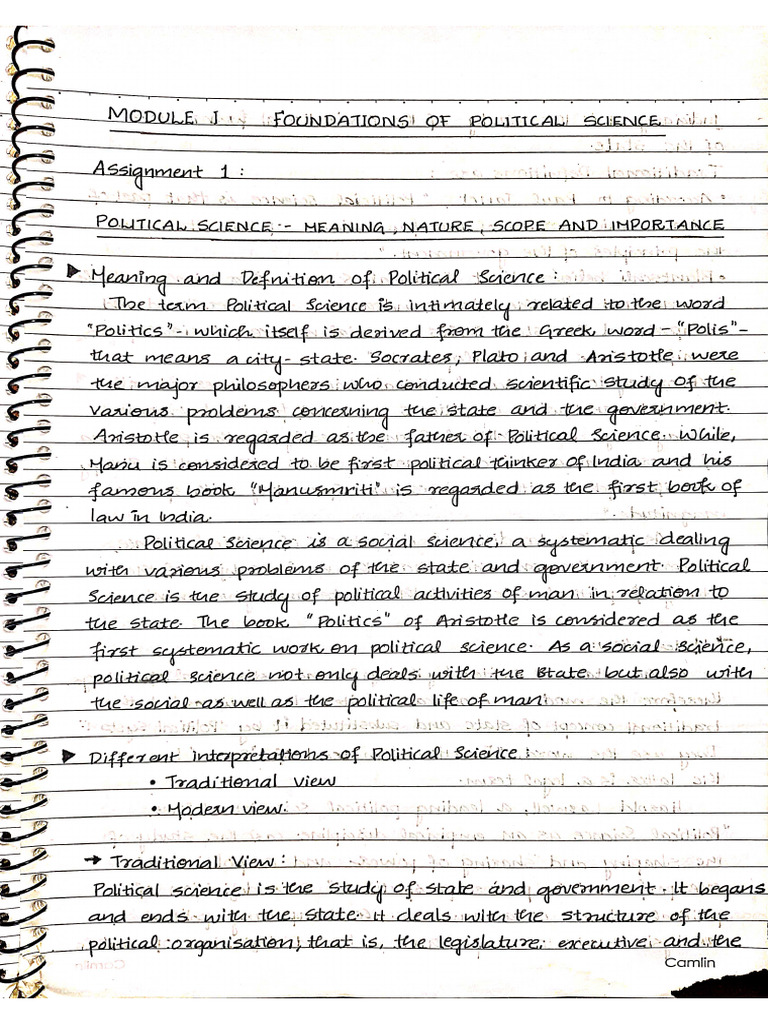 MODULE I FOUNDATIONS OF POLITICAL SCIENCE
Assignment 1 :
POLITICAL SCIENCE :- MEANING, NATURE, SCOPE AND IMPORTANCE
► Meaning and Definition of Political Science :
The term Political Science is intimately related to the word
"Politics" - which itself is derived from the Greek word - "Polis" -
that means a city-state. Socrates, Plato and Aristotle were
the major philosophers who conducted scientific study of the
various problems concerning the state and the government.
Aristotle is regarded as the father of Political Science. While,
Manu is considered to be first political thinker of India and his
famous book "Manusmriti" is regarded as the first book of
law in India.
Political Science is a social science, a systematic dealing
with various problems of the state and government. Political
Science is the study of political activities of man in relation to
the state. The book "Politics" of Aristotle is considered as the
first systematic work on political science. As a social science,
political science not only deals with the state but also with
the social as well as the political life of man.
► Different interpretations of Political Science :
• Traditional view
• Modern view.
→ Traditional View :
Political science is the study of state and government. It begans
and ends with the state. It deals with the structure of the
political organisation, that is, the legislature, executive and the
Camlin